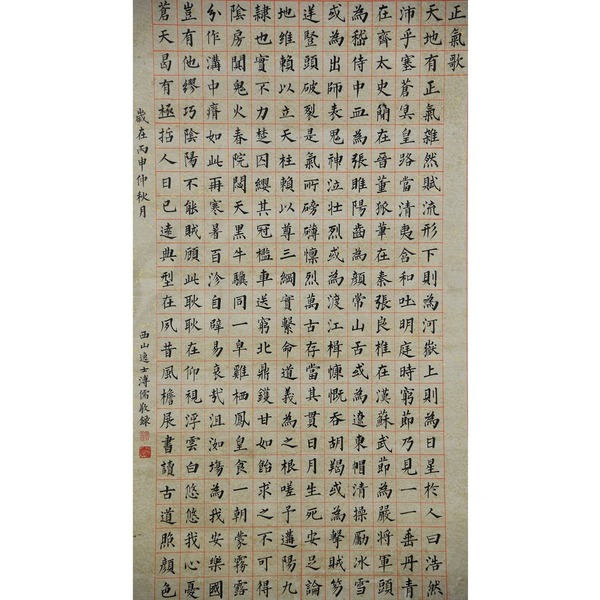 正氣歌
天地有正氣雜然賦流形下則為河嶽上則為日星於人曰浩然
沛乎塞蒼冥皇路當清夷含和吐明庭時窮節乃見一一垂丹青
在齊太史簡在晉董狐筆在秦張良椎在漢蘇武節為嚴將軍頭
為嵇侍中血為張睢陽齒為顏常山舌或為遼東帽清操厲冰雪
或為出師表鬼神泣壯烈或為渡江楫慷慨吞胡羯或為擊賊笏
逆豎頭破裂是氣所磅礴凜烈萬古存當其貫日月生死安足論
地維賴以立天柱賴以尊三綱實繫命道義為之根嗟予遘陽九
隸也實不力楚囚纓其冠檻車送窮北鼎鑊甘如飴求之不可得
陰房闃鬼火春院閟天黑牛驥同一皁雞栖鳳皇食一朝蒙霧露
分作溝中瘠如此再寒暑百沴自辟易哀哉沮洳場為我安樂國
豈有他繆巧陰陽不能賊顧此耿耿在仰視浮雲白悠悠我心憂
蒼天曷有極哲人日已遠典型在夙昔風檐展書讀古道照顏色
歲在丙申仲秋月
西山逸士溥儒敬錄